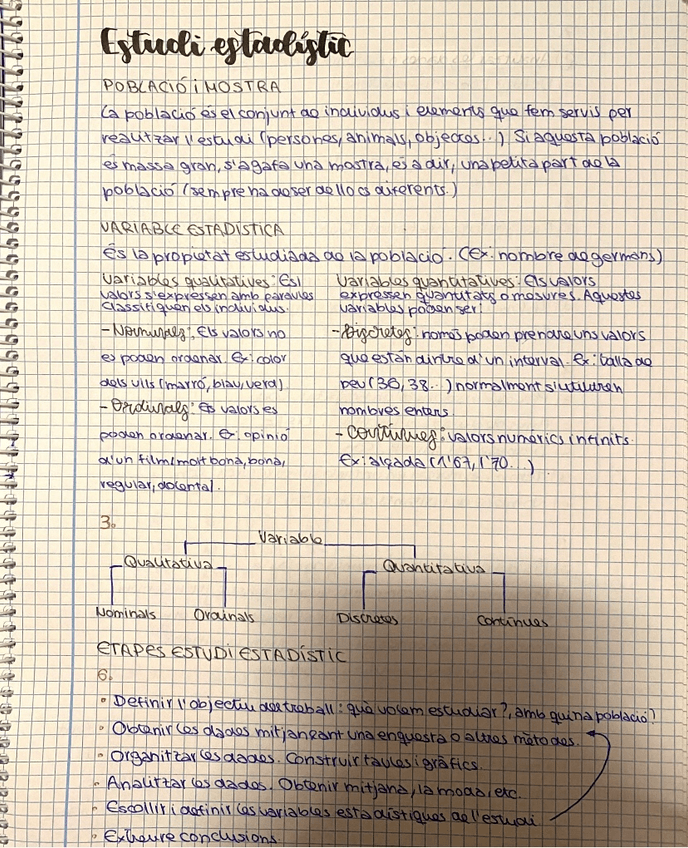 Estudi estadístic
POBLACIÓ i MOSTRA
La població és el conjunt de individus i elements que fem servis per
realitzar l'estudi (persones, animals, objectes...) Si aquesta població
és massa gran, s'agafa una mostra, és a dir, una petita part de la
població (sempre ha de ser de llocs diferents.)
VARIABLE ESTADÍSTICA
És la propietat estudiada de la població. (Ex: nombre de germans)
Variables qualitatives: Es l
valors s'expressen amb paraules
classifiquen els individus.
- Nominals: Els valors no
es poden ordenar. Ex: color
dels ulls (marró, blau, verd)
- Ordinals: Es valors es
poden ordenar. Ex: opinió
d'un film (molt bona, bona,
regular, dolenta).
Variables quantitatives: Els valors
expressen quantitats o mesures. Aquestes
variables poden ser:
- Discretes: només poden prendre uns valors
que estan dintre d'un interval. Ex: talla de
peu (36, 38...) normalment s'utilitzen
nombres enters.
- Contínues: valors numèrics infinits.
Ex: alçada (1'67, 1'70...)
3.
Variable
Qualitativa Quantitativa
Nominals Ordinals Discretes Contínues
ETAPES ESTUDI ESTADÍSTIC
6.
• Definir l'objectiu del treball: què volem estudiar?, amb quina població?
• Obtenir les dades mitjançant una enquesta o altres mètodes.
• Organitzar les dades. Construir taules i gràfics.
• Analitzar les dades. Obtenir mitjana, la moda, etc.
• Escollir i definir les variables estadístiques de l'estudi
• Extreure conclusions.